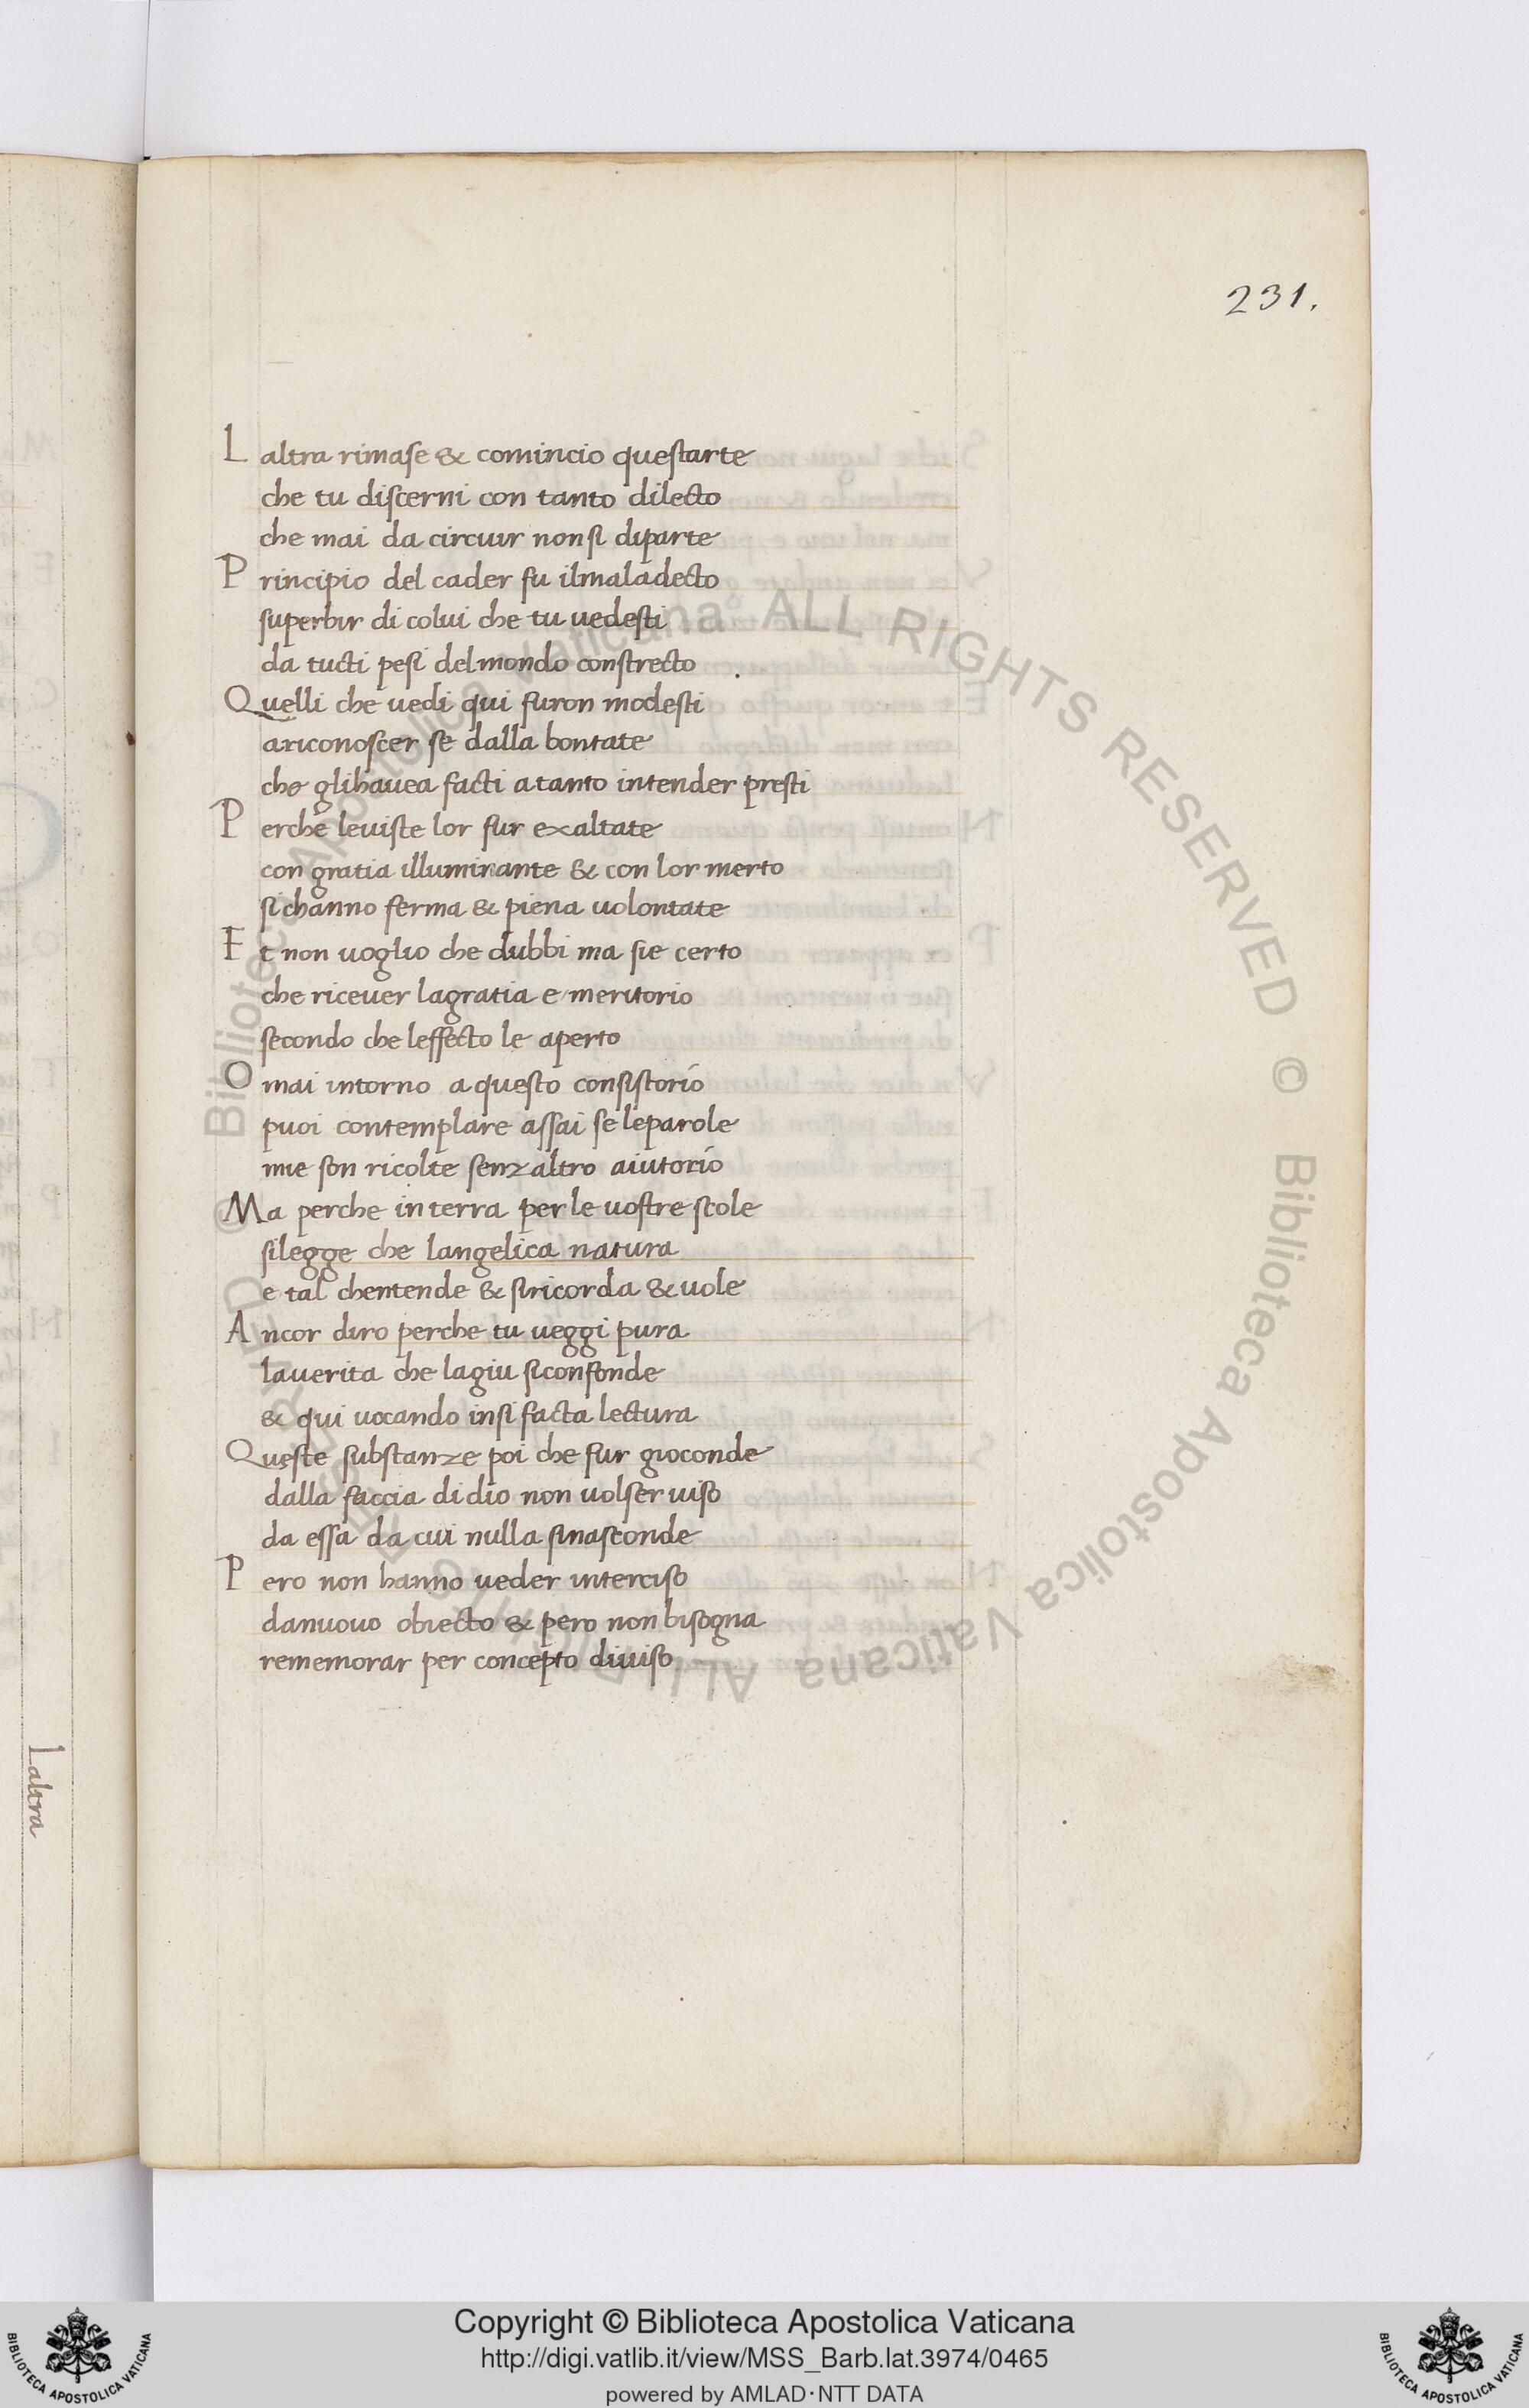 231.
L altra rimase & comincio questarte
che tu discerni con tanto dilecto
che mai da circuir non si diparte
P rincipio del cader fu ilmaladecto
superbir di colui che tu uedesti
da tucti pesi del mondo constrecto
Quelli che uedi qui furon modesti
ariconoscer se dalla bontate
che glihauea facti a tanto intender presti
P erche leuiste lor fur exaltate
con gratia illuminante & con lor merto
si channo ferma & piena uolontate
E t non uoglio che dubbi ma sie certo
che riceuer lagratia e meritorio
secondo che leffecto le aperto
O mai intorno a questo consistorio
puoi contemplare assai se leparole
mie son ricolte senzaltro aiutorio
Ma perche in terra per le uostre scole
silegge che langelica natura
e tal chentende & siricorda & uole
A ncor diro perche tu ueggi pura
lauerita che lagiu siconfonde
& qui uocando insi facta lectura
Queste substanze poi che fur gioconde
dalla faccia didio non uolser uiso
da essa da cui nulla sinasconde
P ero non hanno ueder interciso
danuouo obiecto & pero non bisogna
rememorar per concepto diuiso
Laltra
© Biblioteca Apostolica Vaticana ALL RIGHTS RESERVED © Biblioteca Apostolica Vaticana ALL RIGHTS RESERVED
Copyright © Biblioteca Apostolica Vaticana
http://digi.vatlib.it/view/MSS_Barb.lat.3974/0465
powered by AMLAD·NTT DATA
BIBLIOTECA APOSTOLICA VATICANA
BIBLIOTECA APOSTOLICA VATICANA